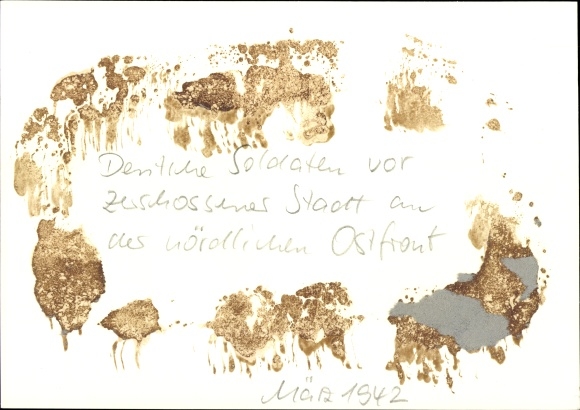 Deutsche Soldaten vor
zerschossener Stadt an
der nördlichen Ostfront
März 1942